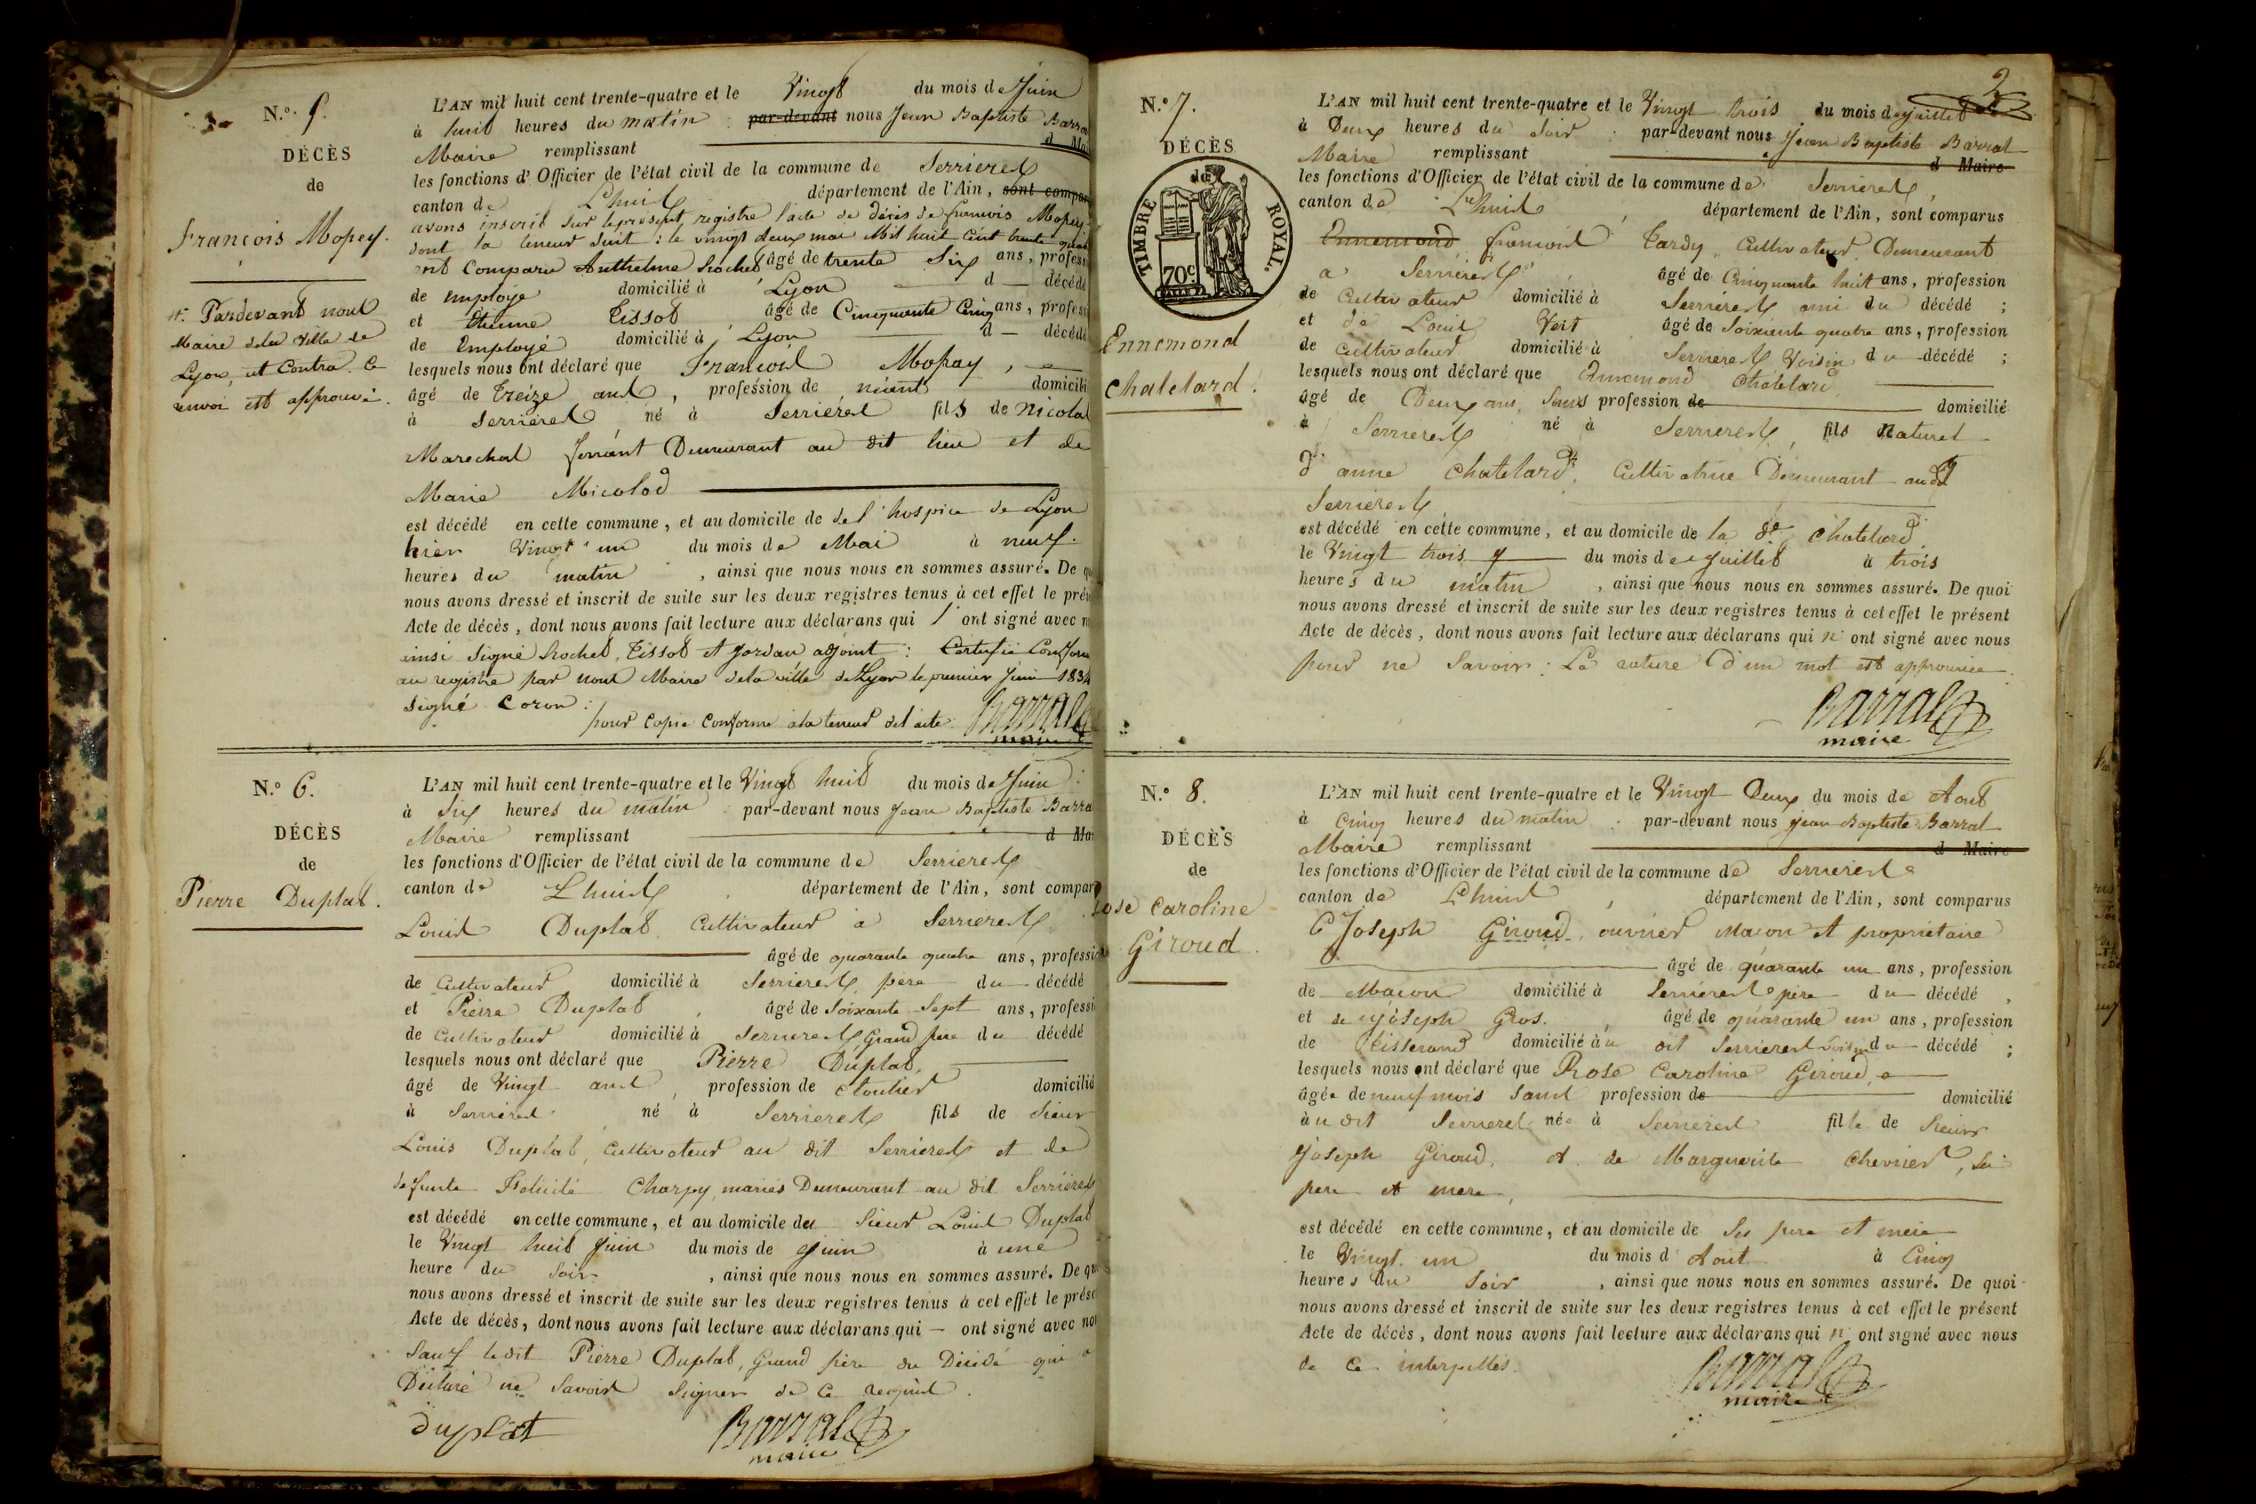 N.º 5.
DÉCÈS
de
François Mopey.
Pardevant nous
Maire de la ville de
Lyon, et contre ce
renvoi est approuvé.
L'AN mil huit cent trente-quatre et le Vingt du mois de Juin
à huit heures du matin par-devant nous Jean Baptiste Barra
Maire remplissant d Mai
les fonctions d'Officier de l'état civil de la commune de Serrieres
canton de Lhuis département de l'Ain, sont compar
avons inscrit sur le présent registre l'acte de décès de françois Mopey
dont la teneur suit : le vingt deux mai Mil huit cent trente quat
ont comparu Anthelme Rochet âgé de trente Six ans, professi
de employé domicilié à Lyon d — décédé
et Etienne Tissot âgé de Cinquante Cinq ans, professi
de Employé domicilié à Lyon d — décédé
lesquels nous ont déclaré que François Mopay,
âgé de treize ans, profession de néant domicili
à Serrieres né à Serrieres fils de Nicolas
Marechal ferrant Demeurant au dit lieu et de
Marie Micolod
est décédé en cette commune, et au domicile de de l'hospice de Lyon
hier Vingt un du mois de Mai à neuf
heures du matin, ainsi que nous nous en sommes assuré. De qu
nous avons dressé et inscrit de suite sur les deux registres tenus à cet effet le prés
Acte de décès, dont nous avons fait lecture aux déclarans qui ont signé avec n
ainsi signé Rochet, Tissot et Jordan adjoint : Certifié Conforme
au registre par nous Maire de la ville de Lyon le premier Juin 1834
Signé Coron :
pour copie conforme à la teneur de l'acte. Barral
maire
N.º 6.
DÉCÈS
de
Pierre Duplat.
L'AN mil huit cent trente-quatre et le Vingt huit du mois de Juin
à Six heures du matin par-devant nous Jean Baptiste Barra
Maire remplissant d Mai
les fonctions d'Officier de l'état civil de la commune de Serrieres
canton de Lhuis département de l'Ain, sont compar
Louis Duplat Cultivateur à Serrieres
âgé de quarante quatre ans, professi
de Cultivateur domicilié à Serrieres père du décédé
et Pierre Duplat âgé de Soixante Sept ans, professi
de Cultivateur domicilié à Serrieres Grand père du décédé
lesquels nous ont déclaré que Pierre Duplat,
âgé de Vingt ans, profession de Cloutier domicilié
à Serrieres né à Serrieres fils de Sieur
Louis Duplat, Cultivateur au dit Serrieres et de
defunte Felicité Charpy, mariés Demeurant au dit Serrieres
est décédé en cette commune, et au domicile du Sieur Louis Duplat
le Vingt huit Juin du mois de Juin à une
heure du Soir, ainsi que nous nous en sommes assuré. De qu
nous avons dressé et inscrit de suite sur les deux registres tenus à cet effet le prése
Acte de décès, dont nous avons fait lecture aux déclarans qui — ont signé avec nou
Sauf ledit Pierre Duplat, Grand père du Décédé qui a
Déclaré ne Savoir Signer de ce requis.
Duplat Barral
maire
2
N.º 7.
DÉCÈS
de
TIMBRE ROYAL.
70c
Ennemond
chatelard.
L'AN mil huit cent trente-quatre et le Vingt trois du mois de Juillet
à Deux heures du Soir : par-devant nous Jean Baptiste Barral
Maire remplissant d Maire
les fonctions d'Officier de l'état civil de la commune de Serrieres
canton de Lhuis, département de l'Ain, sont comparus
Ennemond françois Tardy, Cultivateur Demeurant
a Serrieres, âgé de Cinquante huit ans, profession
de Cultivateur domicilié à Serrieres ami du décédé ;
et de Louis âgé de Soixante quatre ans, profession
de Cultivateur domicilié à Serrieres Voisin du décédé ;
lesquels nous ont déclaré que Ennemond Chatelard
âgé de Deux ans, Sans profession de domicilié
à Serrieres né à Serrieres, fils Naturel
d'anne Chatelard, Cultivatrice Demeurant audit
Serrieres
est décédé en cette commune, et au domicile de la de Chatelard
le Vingt trois du mois de Juillet à trois
heures du matin, ainsi que nous nous en sommes assuré. De quoi
nous avons dressé et inscrit de suite sur les deux registres tenus à cet effet le présent
Acte de décès, dont nous avons fait lecture aux déclarans qui n' ont signé avec nous
pour ne Savoir : La rature d'un mot est approuvée.
Barral
maire
N.º 8.
DÉCÈS
de
Rose Caroline
Giroud.
L'AN mil huit cent trente-quatre et le Vingt Deux du mois de Aout
à Cinq heures du matin : par-devant nous Jean Baptiste Barral
Maire remplissant d Maire
les fonctions d'Officier de l'état civil de la commune de Serrieres
canton de Lhuis, département de l'Ain, sont comparus
Joseph Giroud, ouvrier Macon et propriétaire
âgé de quarante un ans, profession
de Macon domicilié à Serrieres père du décédé,
et de Joseph Gros. âgé de quarante un ans, profession
de tisserand domicilié à u dit Serrieres Voisin du décédé ;
lesquels nous ont déclaré que Rose Caroline Giroud,
âgée de neuf mois Sans profession de domicilié
àu dit Serrieres née à Serrieres fille de Sieur
Joseph Giroud, et de Marguerite Chevrier, Ses
père et mere,
est décédé en cette commune, et au domicile de Ses père et mere
le Vingt un du mois d'Aout à Cinq
heures du Soir, ainsi que nous nous en sommes assuré. De quoi
nous avons dressé et inscrit de suite sur les deux registres tenus à cet effet le présent
Acte de décès, dont nous avons fait lecture aux déclarans qui n' ont signé avec nous
de ce interpellés.
Barral
maire